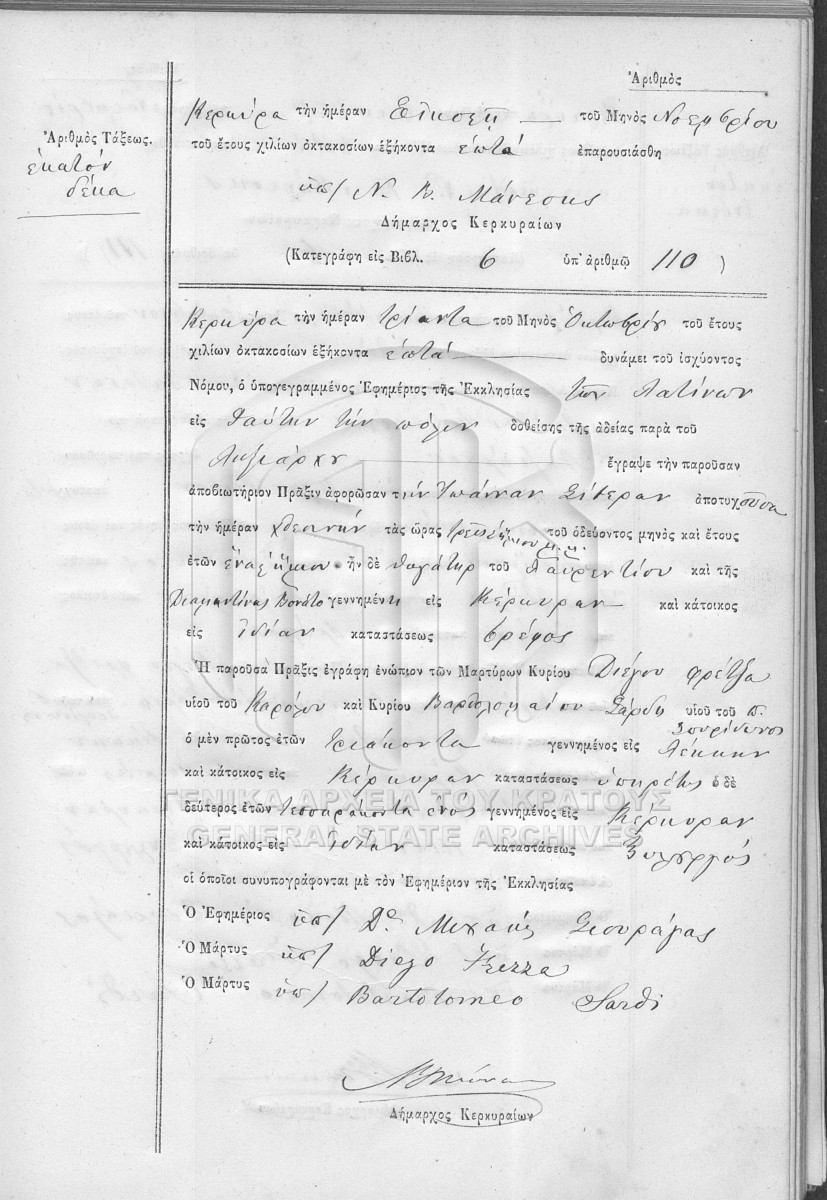 Ἀριθμὸς
Κερκύρα τὴν ἡμέραν Εἴκοσι τοῦ Μηνὸς Νοεμβρίου
Ἀριθμὸς Τάξεως.
ἑκατὸν
δέκα
τοῦ ἔτους χιλίων ὀκτακοσίων ἑξήκοντα ἑπτά ἐπαρουσιάσθη
ὑπ/ Ν. Β. Μάνεσης
Δήμαρχος Κερκυραίων
(Κατεγράφη εἰς Βιβλ. 6 ὑπ' ἀριθμῷ 110 )
Κερκύρα τὴν ἡμέραν τριάντα τοῦ Μηνὸς Ὀκτωβρίου τοῦ ἔτους
χιλίων ὀκτακοσίων ἑξήκοντα ἑπτά δυνάμει τοῦ ἰσχύοντος
Νόμου, ὁ ὑπογεγραμμένος Ἐφημέριος τῆς Ἐκκλησίας τῶν Λατίνων
εἰς ταύτην τὴν πόλιν δοθείσης τῆς ἀδείας παρὰ τοῦ
Ληξιάρχου ἔγραψε τὴν παροῦσαν
ἀποβιωτήριον Πρᾶξιν ἀφορῶσαν τὴν Ἰωάνναν Σίβεραν ἀποτυχοῦσα
τὴν ἡμέραν χθεσινήν τὰς ὥρας τρεῖς ἥμισυ μ.μ. τοῦ ὁδεύοντος μηνὸς καὶ ἔτους
ἐτῶν ἑνὸς ἥμισυ ἦν δὲ θυγάτηρ τοῦ Λαυρεντίου καὶ τῆς
Διαμαντίνας Βονάτο γεννημένη εἰς Κέρκυραν καὶ κάτοικος
εἰς ἰδίαν καταστάσεως βρέφος
Ἡ παροῦσα Πρᾶξις ἐγράφη ἐνώπιον τῶν Μαρτύρων Κυρίου Διέγου Φρέτζα
υἱοῦ τοῦ Καρόλου καὶ Κυρίου Βαρθολομαίου Σάρδη υἱοῦ τοῦ π.
Σπυρίδωνος
ὁ μὲν πρῶτος ἐτῶν τριάκοντα γεννημένος εἰς Λέκκην
καὶ κάτοικος εἰς Κέρκυραν καταστάσεως ὑπηρέτης ὁ δὲ
δεύτερος ἐτῶν τεσσαράκοντα ἑνὸς γεννημένος εἰς Κέρκυραν
καὶ κάτοικος εἰς ἰδίαν καταστάσεως ξυλουργός
οἱ ὁποῖοι συνυπογράφονται μὲ τὸν Ἐφημέριον τῆς Ἐκκλησίας
Ὁ Ἐφημέριος ὑπ/ Dn Μιχαὴλ Σκουράγας
Ὁ Μάρτυς ὑπ/ Diego Frezza
Ὁ Μάρτυς ὑπ/ Bartolomeo Sardi
Δήμαρχος Κερκυραίων
ΓΕΝΙΚΑ ΑΡΧΕΙΑ ΤΟΥ ΚΡΑΤΟΥΣ
GENERAL STATE ARCHIVES